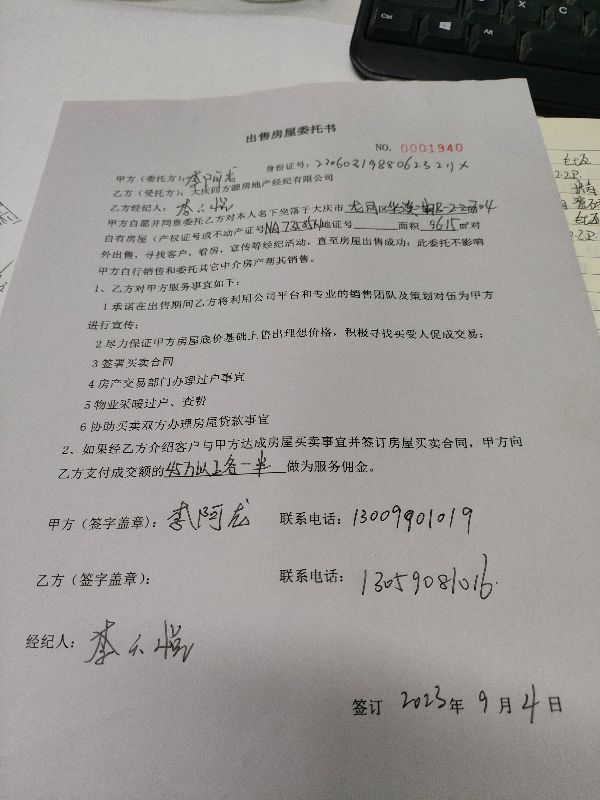 出售房屋委托书
NO. 0001940
甲方（委托方）：李阿龙 身份证号：230603198806232
乙方（受托方）：大庆四方源房地产经纪有限公司
乙方经纪人：李
甲方自愿并同意委托乙方对本人名下坐落于大庆市 龙凤区 2-2-704
自有房屋（产权证号或不动产证号NA735854地证号 面积 96.15 ㎡对
外出售，寻找客户，看房，宣传等经纪活动，直至房屋出售成功；此委托不影响
甲方自行销售和委托其它中介房产帮其销售。
1、乙方对甲方服务事宜如下：
1 承诺在出售期间乙方将利用公司平台和专业的销售团队及策划对伍为甲方
进行宣传；
2 尽力保证甲方房屋底价基础上售出理想价格，积极寻找买受人促成交易；
3 签署买卖合同
4 房产交易部门办理过户事宜
5 物业采暖过户、查费
6 协助买卖双方办理房屋贷款事宜
2、如果经乙方介绍客户与甲方达成房屋买卖事宜并签订房屋买卖合同，甲方向
乙方支付成交额的45万以上各一半 做为服务佣金。
甲方（签字盖章）：李阿龙 联系电话：13009901019
乙方（签字盖章）： 联系电话：13059081016
经纪人：李
签订 2023年 9月4日
Ctrl
Alt
AR